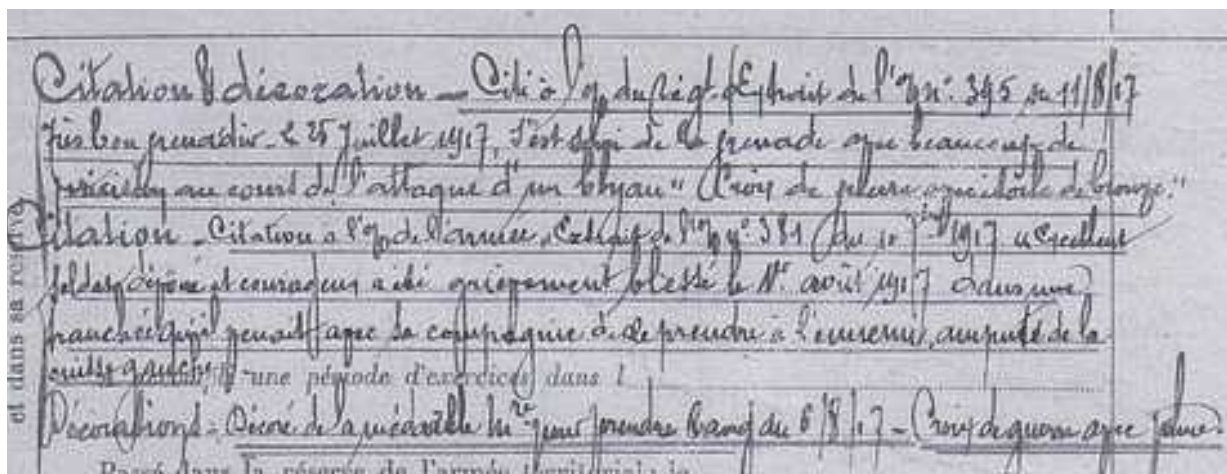 Citation & décoration - Cité à l'o/ du Régt (Extrait de l'o/ n° 395 du 11/8/17
très bon grenadier - le 25 Juillet 1917, s'est servi de la grenade avec beaucoup de
précision au cours de l'attaque d'un boyau" Croix de guerre avec étoile de bronze."
Citation - Citation à l'o/ de l'armée. Extrait de l'o/ n° 381 du 10 7bre 1917 "Excellent
soldat, dévoué et courageux a été grièvement blessé le 1er août 1917 dans une
tranchée qu'il venait avec sa compagnie de prendre à l'ennemi, amputé de la
cuisse gauche
une période d'exercices dans l
Décorations - Décoré de la médaille Mre pour prendre rang du 6/8/17 - Croix de guerre avec palme.
Passé dans la réserve de l'armée territoriale le
et dans sa réserve